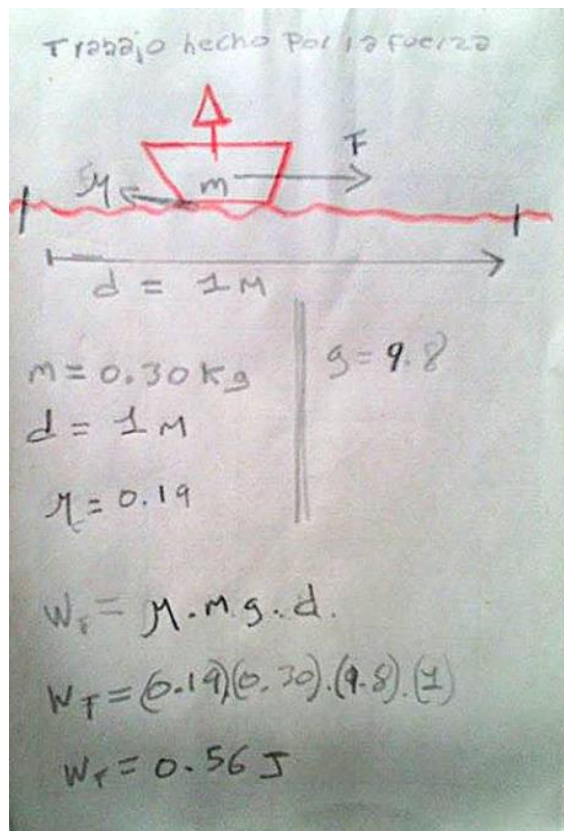 Trabajo hecho por la fuerza
F
μ
m
d = 1 M
m = 0.30 Kg
g = 9.8
d = 1 M
μ = 0.19
W_T = μ.m.g.d.
W_T = (0.19)(0.30).(9.8).(1)
W_T = 0.56 J